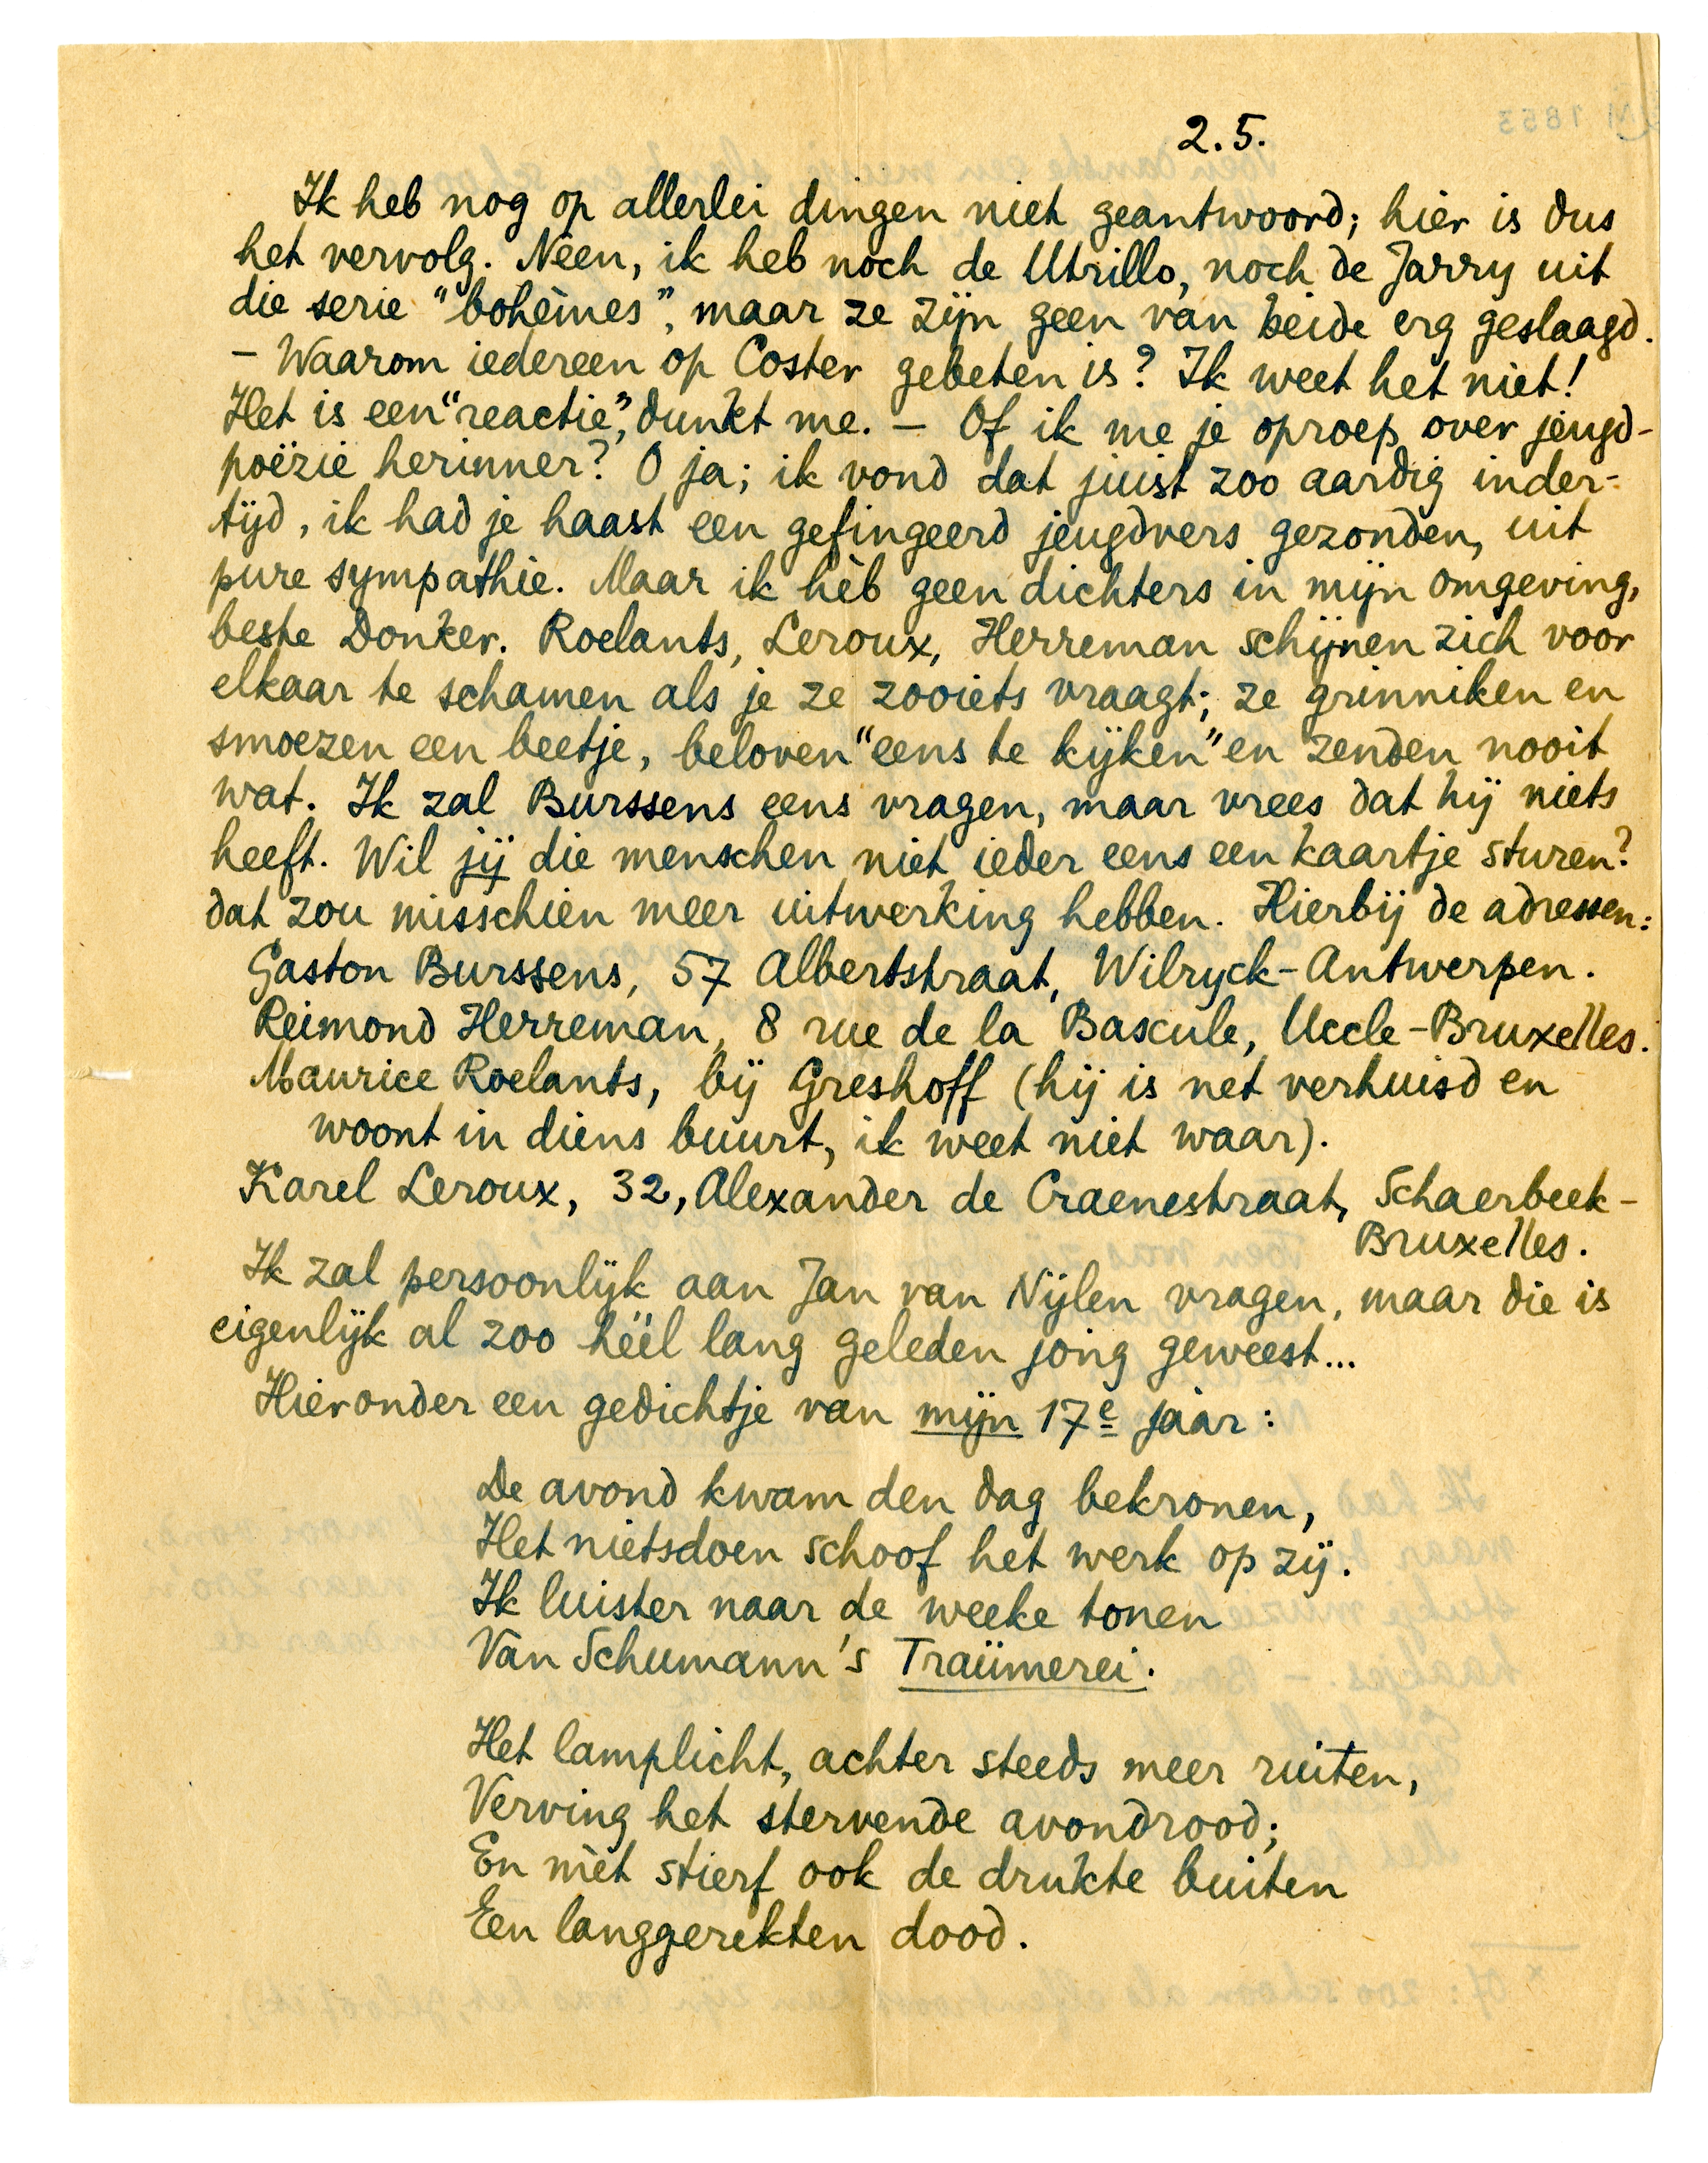 2.5.
Ik heb nog op allerlei dingen niet geantwoord; hier is dus
het vervolg. Néen, ik heb noch de Utrillo, noch de Jarry uit
die serie "bohèmes", maar ze zijn geen van beide erg geslaagd.
– Waarom iedereen op Coster gebeten is? Ik weet het niet!
Het is een "reactie", dunkt me. – Of ik me je oproep over jeugd-
poëzie herinner? O ja; ik vond dat juist zoo aardig inder-
tijd, ik had je haast een gefingeerd jeugdvers gezonden, uit
pure sympathie. Maar ik hèb geen dichters in mijn omgeving,
beste Donker. Roelants, Leroux, Herreman schijnen zich voor
elkaar te schamen als je ze zooiets vraagt; ze grinniken en
smoezen een beetje, beloven "eens te kijken" en zenden nooit
wat. Ik zal Burssens eens vragen, maar vrees dat hij niets
heeft. Wil jij die menschen niet ieder eens een kaartje sturen?
dat zou misschien meer uitwerking hebben. Hierbij de adressen:
Gaston Burssens, 57 Albertstraat, Wilryck-Antwerpen.
Reimond Herreman, 8 rue de la Bascule, Uccle-Bruxelles.
Maurice Roelants, bij Greshoff (hij is net verhuisd en
woont in diens buurt, ik weet niet waar).
Karel Leroux, 32, Alexander de Craenestraat, Schaerbeek-
Bruxelles.
Ik zal persoonlijk aan Jan van Nijlen vragen, maar die is
eigenlijk al zoo héél lang geleden jong geweest...
Hieronder een gedichtje van mijn 17e jaar:
De avond kwam den dag bekronen,
Het nietsdoen schoof het werk op zij.
Ik luister naar de weeke tonen
Van Schumann's Traümerei.
Het lamplicht, achter steeds meer ruiten,
Verving het stervende avondrood;
En mèt stierf ook de drukte buiten
Een langgerekten dood.